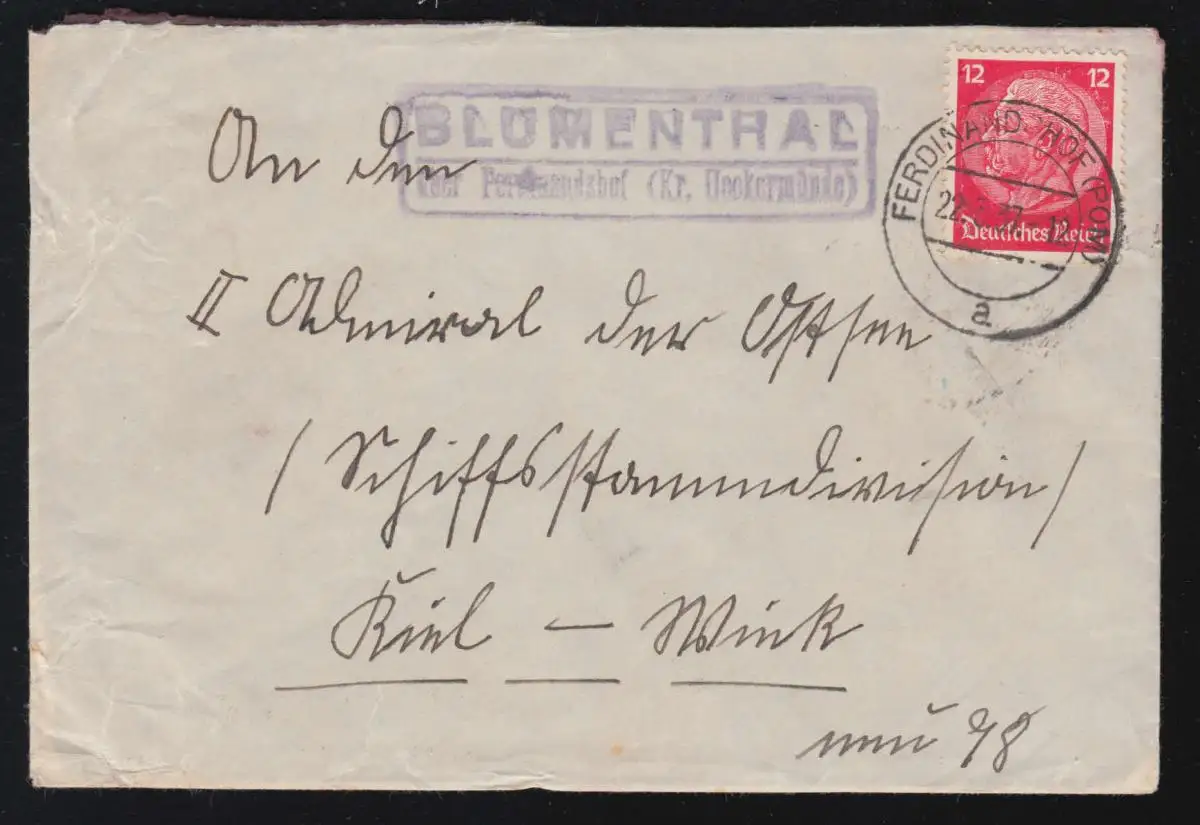 12 12
Deutsches Reich
FERDINANDSHOF (POM)
22. 37. 12
a
BLUMENTHAL
über Ferdinandshof (Kr. Ueckermünde)
An den
II Admiral der Ostsee
/ Schiffsstammdivision /
Kiel – Wik